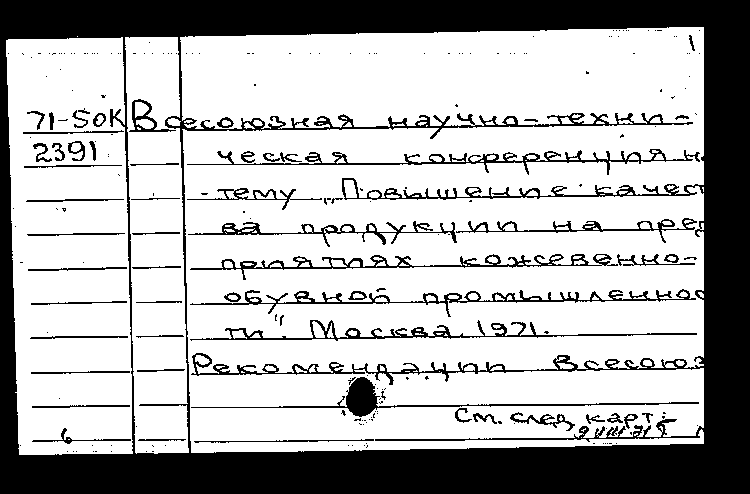 1
71-SOK Всесоюзная научно-техни-
2391 ческая конференция н
тему „Повышение качест
ва продукции на пред
приятиях кожевенно-
обувной промышленнос
ти". Москва 1971.
Рекомендации Всесоюз
См. след. карт.
9 VIII 71
6